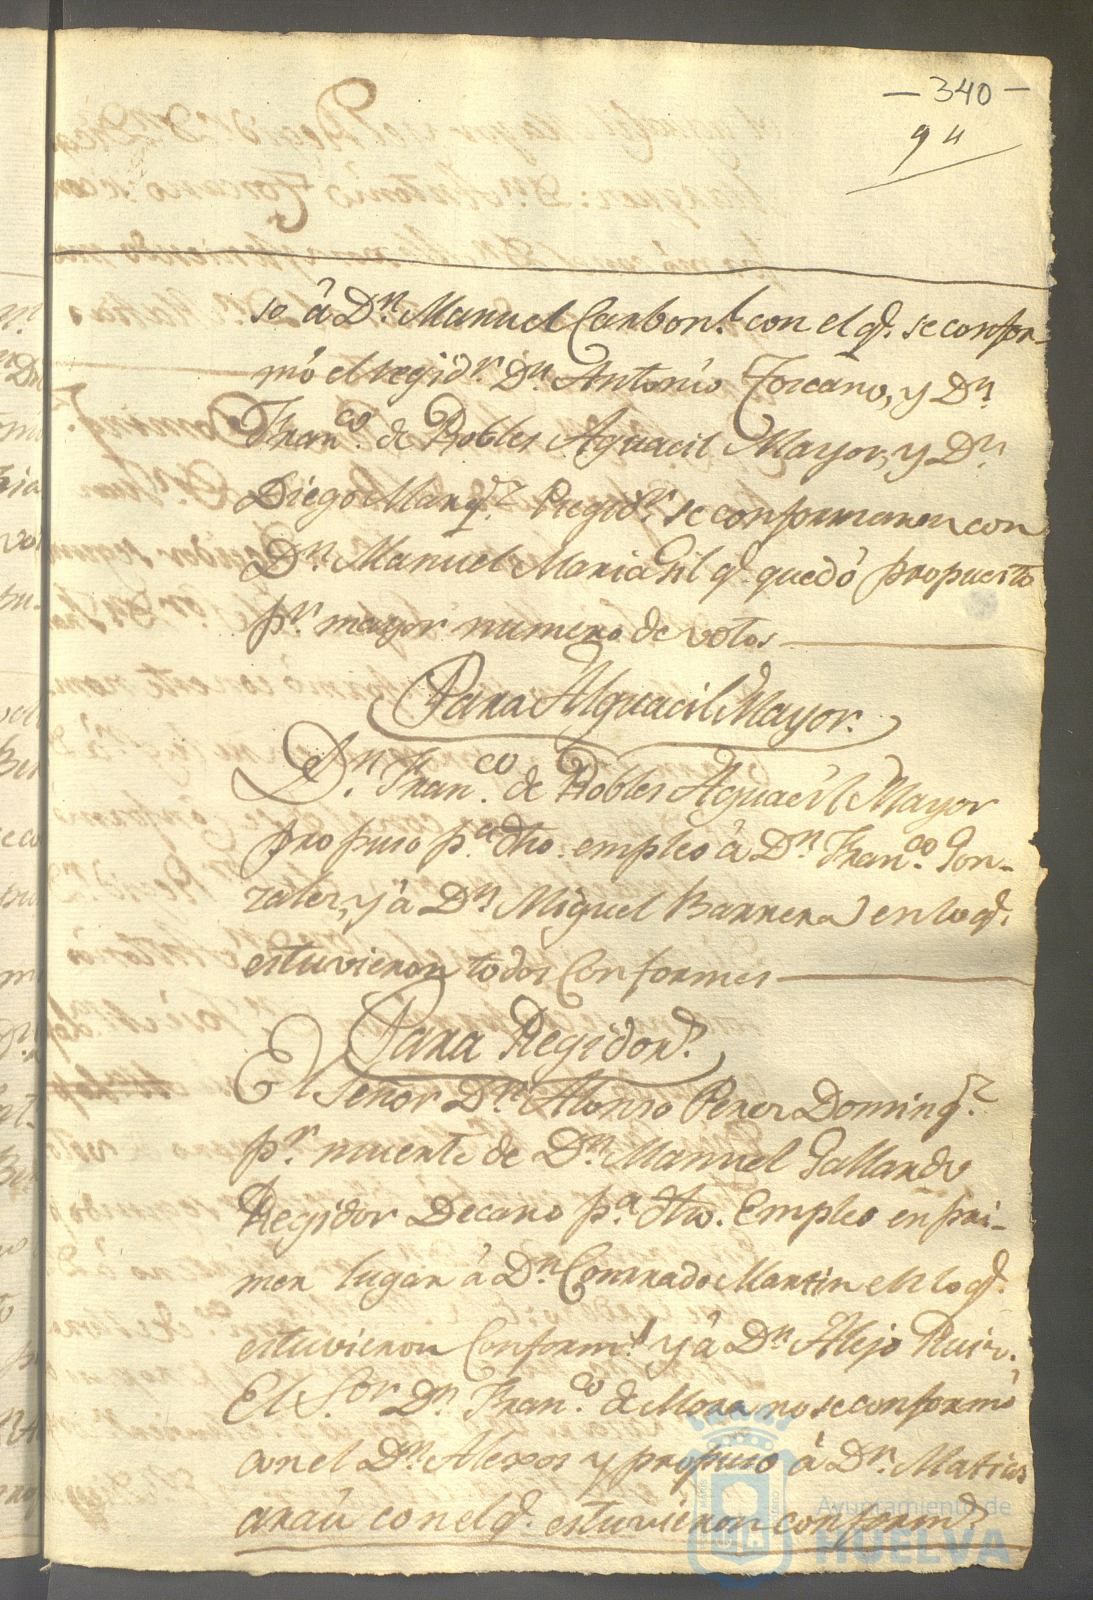 — 340 —
94
se â Dn. Manuel Carbonl. con el q. se confor-
mó el regidr. Dn. Antonio Toscano, y Dn.
Franco. de Robles Aguacil Mayor, y Dn.
Diego Marqz. Regidr. se conformaron con
Dn. Manuel Maria Gil q. quedó propuesto
pr. mayor numero de votos
Para Alguacil Mayor.
Dn. Franco. de Robles Aguacil Mayor
propuso pa. dho. empleo â Dn. Franco. Gon-
zalez, y â Dn. Miguel Barrera en lo q.
estuvieron todos Conformes
Para Regidor.
El Señor Dn. Alonso Perez Domingz.
pr. muerte de Dn. Manuel Gallardo
Regidor Decano pa. dho. Empleo en pri-
mer lugar â Dn. Conrrado Martin en lo q.
estuvieron Conforms. y â Dn. Alejo Ruiz.
El Sor. Dn. Franco. de Mora no se conformó
con el Dn. Alexos y propuso â Dn. Matias
araù con el q. estuvieron conforms.
Ayuntamiento de
HUELVA